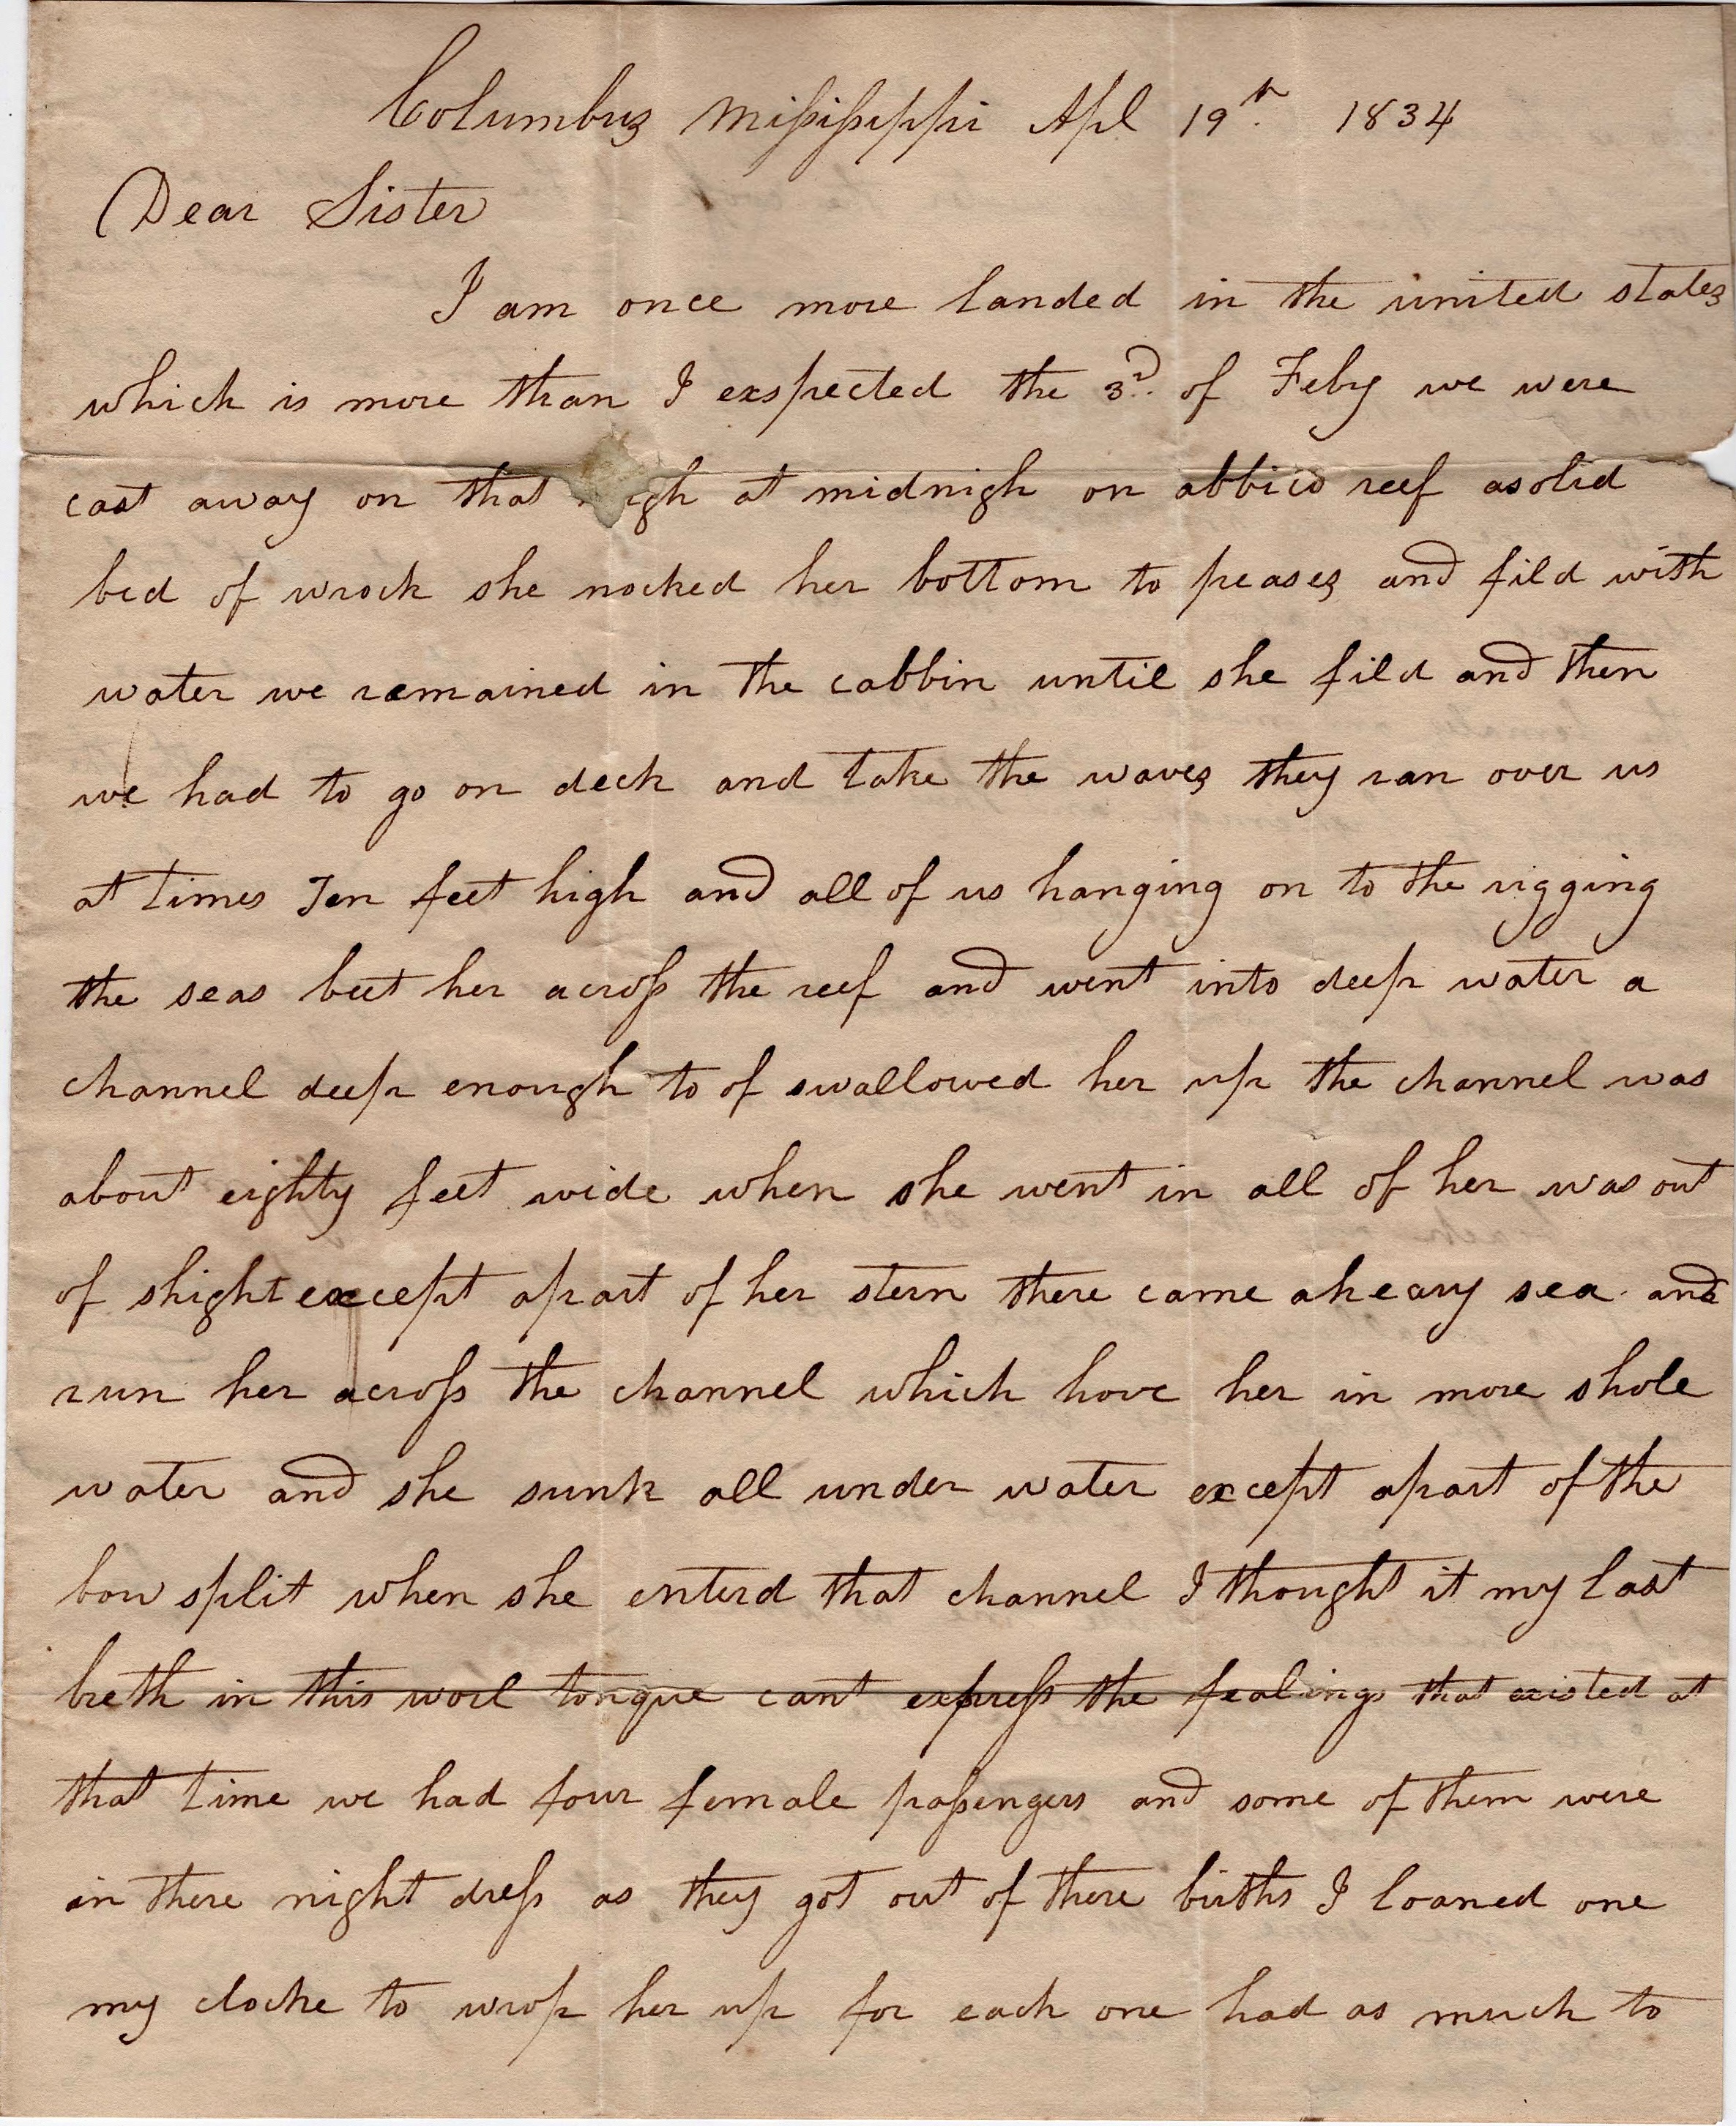 Columbus Mississippi Apl 19th 1834
Dear Sister
I am once more landed in the united states
which is more than I exspected the 3d. of Feby we were
cast away on that nigh at midnigh on abbico reef asolid
bed of wrock she nocked her bottom to peases and fild with
water we remained in the cabbin until she fild and then
we had to go on deck and take the waves they ran over us
at times Ten feet high and all of us hanging on to the rigging
the seas beet her across the reef and went into deep water a
channel deep enough to of swallowed her up the channel was
about eighty feet wide when she went in all of her was out
of shight except apart of her stern there came aheavy sea and
run her across the channel which hove her in more shole
water and she sunk all under water except apart of the
bow split when she enterd that channel I thought it my last
breth in this worl tongue cant express the fealings that existed at
that time we had four female passengers and some of them were
in there night dress as they got out of there births I loaned one
my clocke to wrop her up for each one had as much to